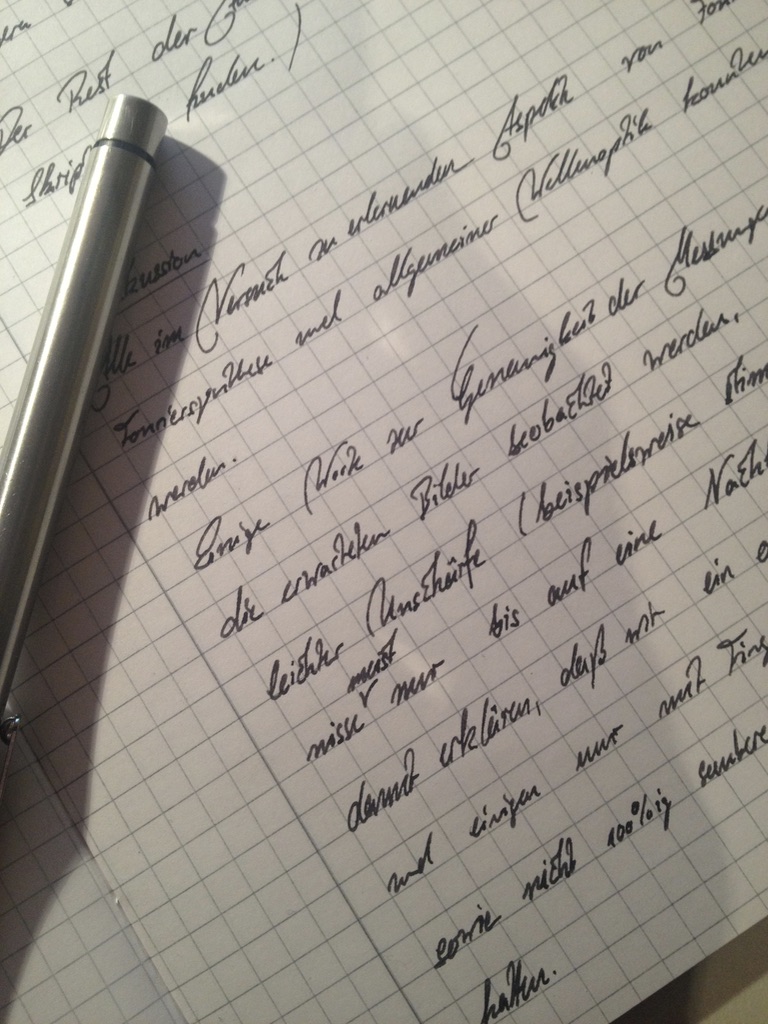 Der Rest der
finden.)
Alle im Versuch zu erlernenden Aspekte von
Fouriersynthese und allgemeiner Wellenoptik konnten
werden.
Einige Worte zur Genauigkeit der
die erwarteten Bilder beobachtet werden,
leichter Unschärfe (beispielsweise
nisse meist nur bis auf eine
damit erklären, daß wir ein
und einigen nur mit
sowie nicht 100%ig
hatten.